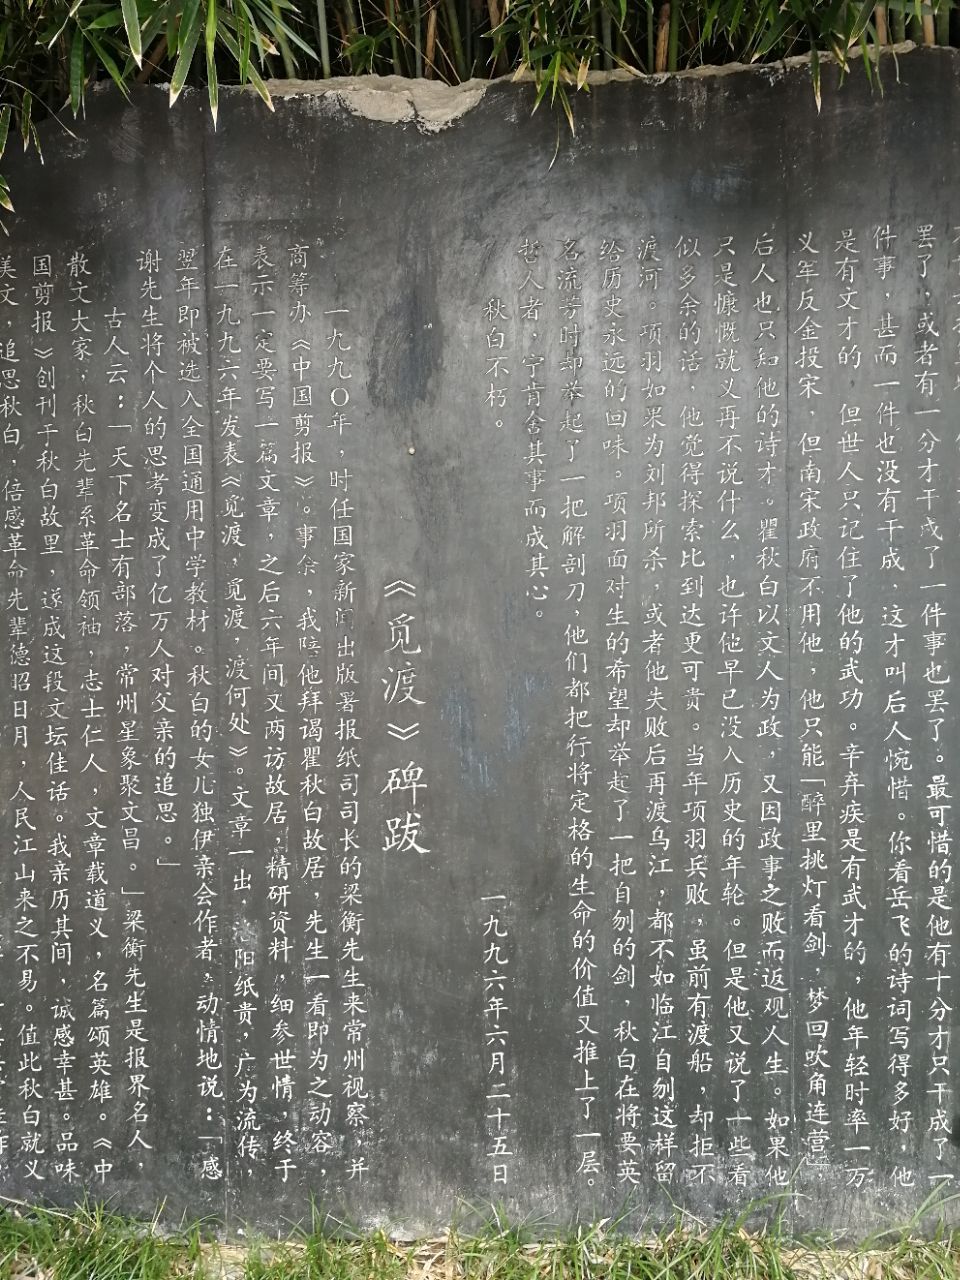 罢了，或者有一分才干成了一件事也罢了。最可惜的是他有十分才只干成了一
件事，甚而一件也没有干成，这才叫后人惋惜。你看岳飞的诗词写得多好，他
是有文才的，但世人只记住了他的武功。辛弃疾是有武才的，他年轻时率一万
义军反金投宋，但南宋政府不用他，他只能「醉里挑灯看剑，梦回吹角连营」
后人也只知他的诗才。瞿秋白以文人为政，又因政事之败而返观人生。如果他
只是慷慨就义再不说什么，也许他早已没入历史的年轮。但是他又说了一些看
似多余的话，他觉得探索比到达更可贵。当年项羽兵败，虽前有渡船，却拒不
渡河。项羽如果为刘邦所杀，或者他失败后再渡乌江，都不如临江自刎这样留
给历史永远的回味。项羽面对生的希望却举起了一把自刎的剑，秋白在将要英
名流芳时却举起了一把解剖刀，他们都把行将定格的生命的价值又推上了一层。
哲人者，宁肯舍其事而成其心。
秋白不朽。
一九九六年六月二十五日
《觅渡》碑跋
一九九〇年，时任国家新闻出版署报纸司司长的梁衡先生来常州视察，并
商筹办《中国剪报》。事余，我陪他拜谒瞿秋白故居，先生一看即为之动容，
表示一定要写一篇文章，之后六年间又两访故居，精研资料，细参世情，终于
在一九九六年发表《觅渡，觅渡，渡何处》。文章一出，洛阳纸贵，广为流传，
翌年即被选入全国通用中学教材。秋白的女儿独伊亲会作者，动情地说：「感
谢先生将个人的思考变成了亿万人对父亲的追思。」
古人云：「天下名士有部落，常州星象聚文昌。」梁衡先生是报界名人，
散文大家，秋白先辈系革命领袖，志士仁人，文章载道义，名篇颂英雄。《中
国剪报》创刊于秋白故里，遂成这段文坛佳话。我亲历其间，诚感幸甚。品味
美文，追思秋白，倍感革命先辈德昭日月，人民江山来之不易。值此秋白就义